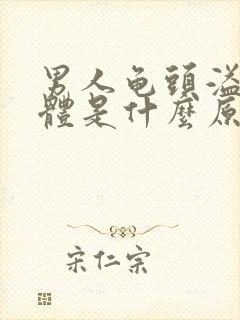 男人龟頭溢
體是什麼原
宋仁宗